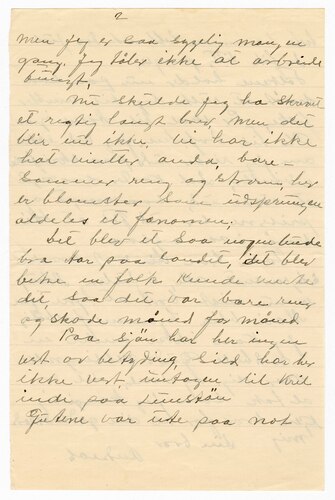 2
men jeg er saa sygelig mangen
gang. Jeg töler ikke at arbeide
tungt,
Nu skulde jeg ha skrevet
et rigtig langt brev men det
blir nu ikke, vi har ikke
hat vinter enda, bare
sommer regn og storm her
er blomster som udspringen
aldeles et fænomen;
Det blev et saa
bra aar paa landet, det blev
betre en folk kunde vente
det, saa det var bare regn
og skodde måned for måned
Paa Sjön har her ingen
vert av betyding, Sild har her
ikke vert, untagen til
inde paa
Gutene var ute paa not